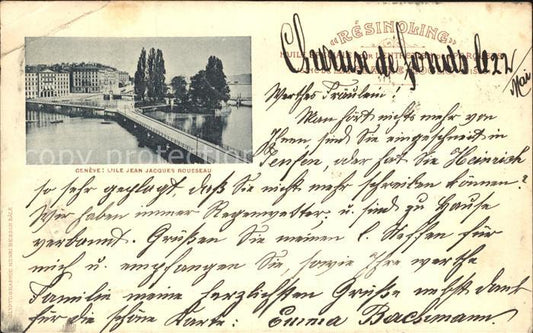 «RÉSINOLINE»
Chaux de fonds le 22
Mai
Werthes Fräulein!
Man hört nichts mehr von
Ihnen, sind Sie eingeschneit in
oder hat Sie Heinrich
GENÈVE: L'ILE JEAN JACQUES ROUSSEAU
so sehr geplagt, daß Sie nicht mehr schreiben können?
Wir haben immer Regenwetter u. sind zu Hause
verbannt. Grüßen Sie meinen l. Neffen für
mich u. empfangen Sie, sowie Ihre werthe
Familie meine herzlichsten Grüße nebst dank
für die schöne Karte: Emma Bachmann.